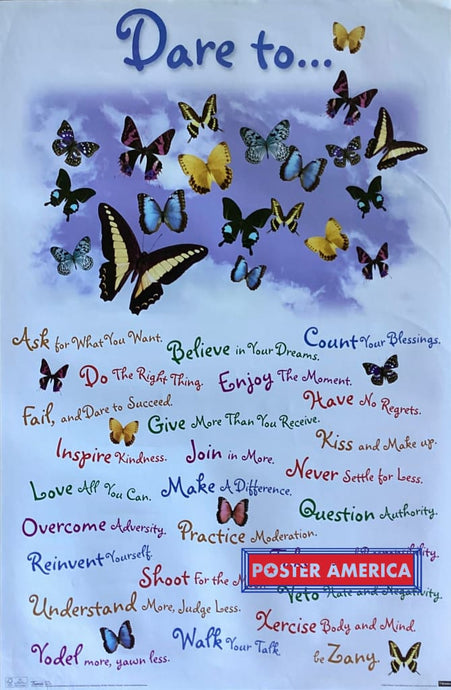 Dare to...
Ask for What You Want.
Believe in Your Dreams.
Count Your Blessings.
Do The Right Thing.
Enjoy The Moment.
Fail, and Dare to Succeed.
Give More Than You Receive.
Have No Regrets.
Inspire Kindness.
Join in More.
Kiss and Make up.
Love All You Can.
Make A Difference.
Never Settle for Less.
Overcome Adversity.
Practice Moderation.
Question Authority.
Reinvent Yourself.
Shoot For the
POSTER AMERICA
Understand More, Judge Less.
Veto Hate and Negativity.
Walk Your Talk
Xercise Body and Mind.
Yodel more, yawn less.
be Zany.